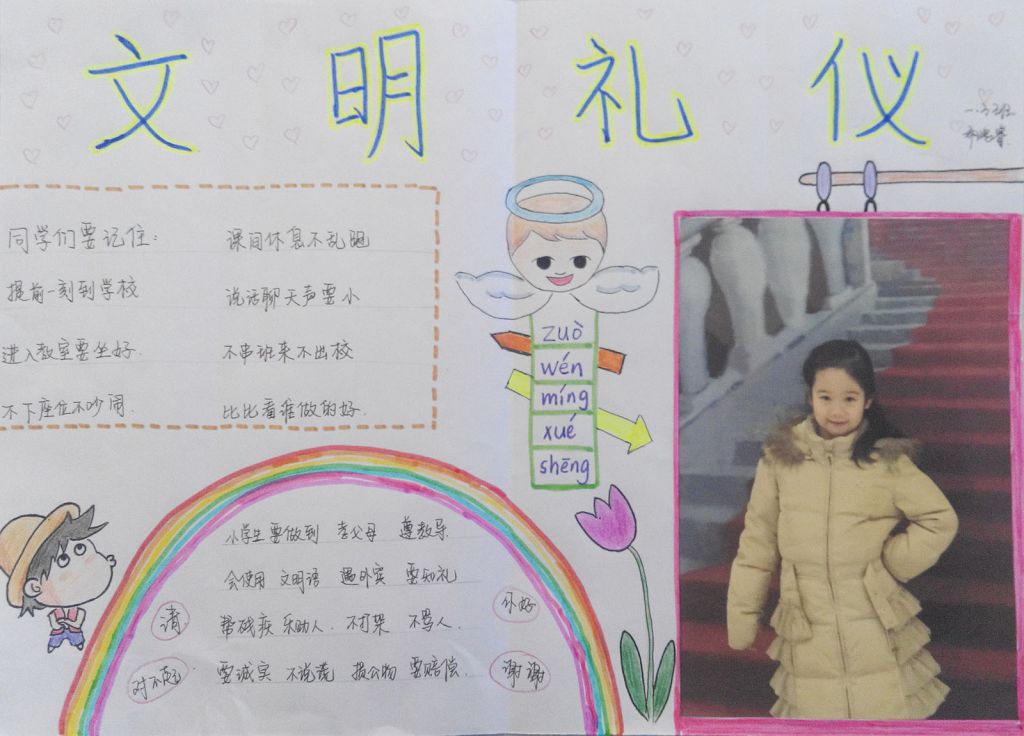 文明礼仪
同学们要记住:
提前一刻到学校
进入教室要坐好.
不下座位不吵闹.
课间休息不乱跑
说话聊天声要小
不串班来不出校
比比看谁做的好.
zuò
wén
míng
xué
shēng
小学生要做到 孝父母 尊教导
会使用 文明语 遇外宾 要知礼
帮残疾 乐助人. 不打架 不骂人.
要诚实 不说谎 损公物 要赔偿.
请
对不起
你好
谢谢